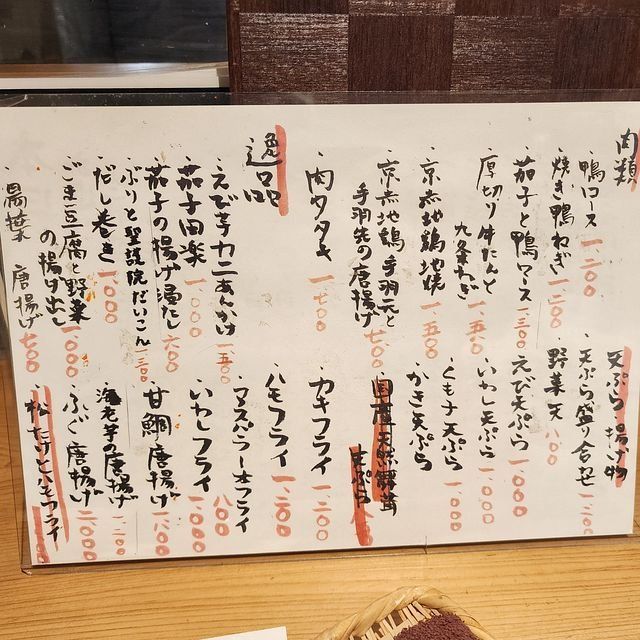 肉類
・鴨ロース 一、二〇〇
・焼き鴨ねぎ 一、二〇〇
・茄子と鴨ロース 一、三〇〇
・厚切り牛たんと
九条ねぎ 一、五〇〇
・京赤地鶏地焼 一、五〇〇
・京赤地鶏手羽元と
手羽先の唐揚げ 七〇〇
・肉タタキ 一、七〇〇
逸品
・えび芋カニあんかけ 一、五〇〇
・茄子田楽 一、〇〇〇
・茄子の揚げ湯だし 六〇〇
・ぶりと聖護院だいこん 一、三〇〇
・だし巻き 一、〇〇〇
・ごま豆腐と野菜
の揚げ出し 一、〇〇〇
・湯葉 唐揚げ 七〇〇
天ぷら 揚げ物
・天ぷら盛り合せ
・野菜天 八〇〇
・えび天ぷら 一、〇〇〇
・いわし天ぷら
・くもト天ぷら 一、〇〇〇
・かき天ぷら
・国産天然舞茸
天ぷら
・カキフライ 一、二〇〇
・ハモフライ 一、二〇〇
・アスパラ一本フライ 八〇〇
・いわしフライ 一、〇〇〇
・甘鯛唐揚げ 一、八〇〇
・海老芋の唐揚げ 一、二〇〇
・ふぐ唐揚げ 二、〇〇〇
・松たけとハモフライ